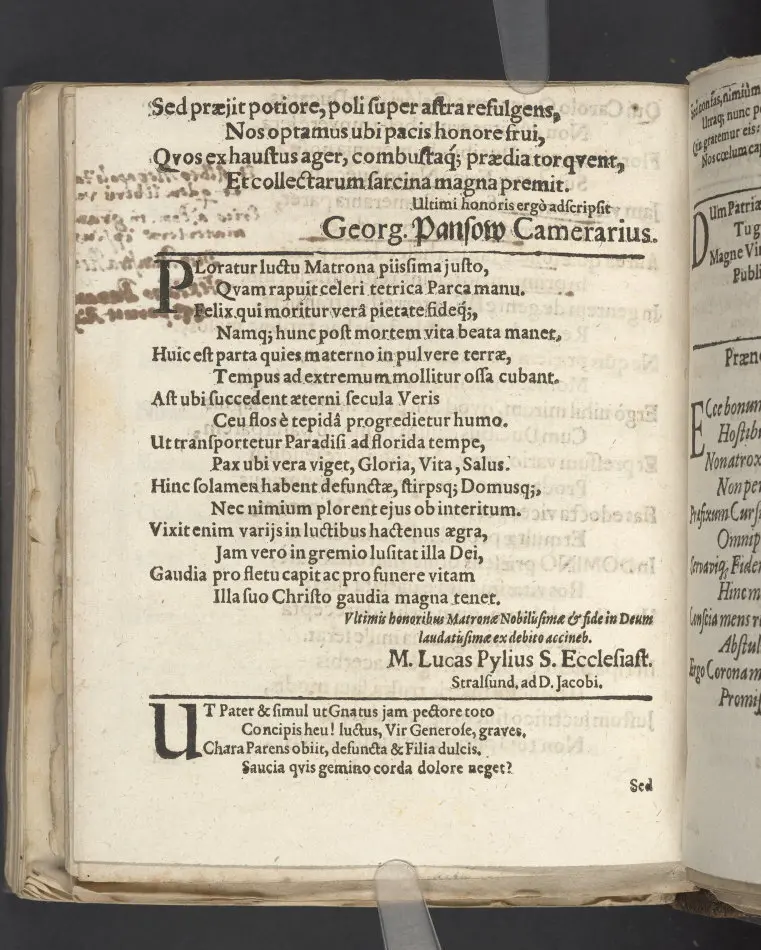 Sed præjit potiore, poli super astra refulgens,
Nos optamus ubi pacis honore frui,
Qvos exhaustus ager, combustaq́; prædia torqvent,
Et collectarum sarcina magna premit.
Ultimi honoris ergò adscripsit
Georg. Pansow Camerarius.
PLoratur luctu Matrona piissima justo,
Qvam rapuit celeri tetrica Parca manu.
Felix qui moritur verâ pietate fideq́;,
Namq; hunc post mortem vita beata manet,
Huic est parta quies materno in pulvere terræ,
Tempus ad extremum mollitur ossa cubant.
Ast ubi succedent æterni secula Veris
Ceu flos è tepidâ progredietur humo.
Ut transportetur Paradisi ad florida tempe,
Pax ubi vera viget, Gloria, Vita, Salus.
Hinc solamen habent defunctæ, stirpsq; Domusq;,
Nec nimium plorent ejus ob interitum.
Vixit enim varijs in luctibus hactenus ægra,
Jam vero in gremio lusitat illa Dei,
Gaudia pro fletu capit ac pro funere vitam
Illa suo Christo gaudia magna tenet.
Vltimis honoribus Matronæ Nobilissimæ & fide in Deum
laudatissimæ ex debito accineb.
M. Lucas Pylius S. Ecclesiast.
Stralsund. ad D. Jacobi.
UT Pater & simul ut Gnatus jam pectore toto
Concipis heu! luctus, Vir Generose, graves.
Chara Parens obiit, defuncta & Filia dulcis.
Saucia qvis gemino corda dolore neget?
Sed
nimium
Utraq; nunc
gratemur eis:
Nos cœlum
DUm Patria
Tug
Magne Vi
Publi
Præn
ECce bonum
Hostib
Non atrox
Non per
Præfixum Curs
Omnip
Servaviq; Fide
Hinc m
Conscia mens
Abstul
Ergo Coronam
Promis